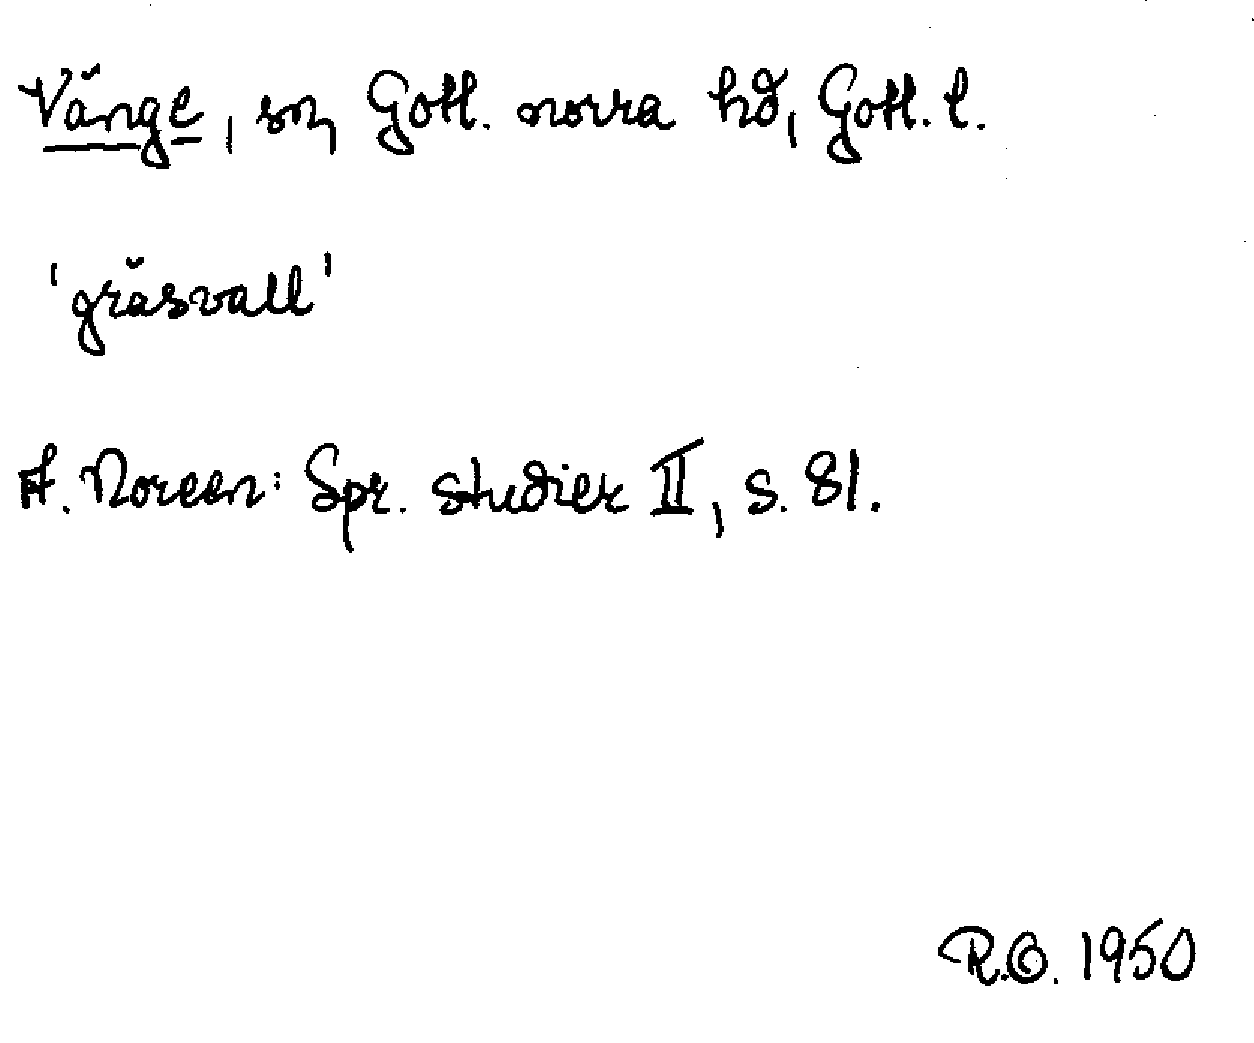 Vänge, sn, Gotl. norra hd, Gotl. l.
'gräsvall'
A. Noreen: Spr. studier II, s. 81.
R.O. 1950